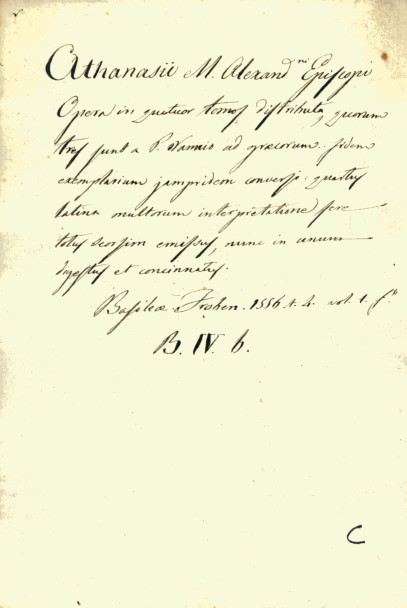 Athanasii M. Alexandni Episcopi
Opera in quatuor tomos distributa, quorum
tres sunt a P. Nannio ad græcorum fidem
exemplarium jampridem conversi: quartus
latina multorum interpretatione fere
totus seorsim emissus, nunc in unum
digestus et concinnatus.
Basileæ Froben. 1556. t. 4. vol. 1. fo
B. IV. 6.
C